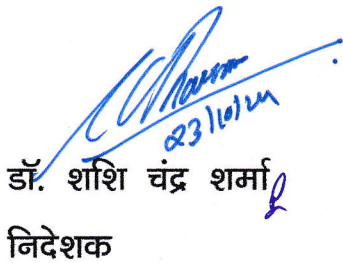 23/10/24
डॉ. शशि चंद्र शर्मा
निदेशक